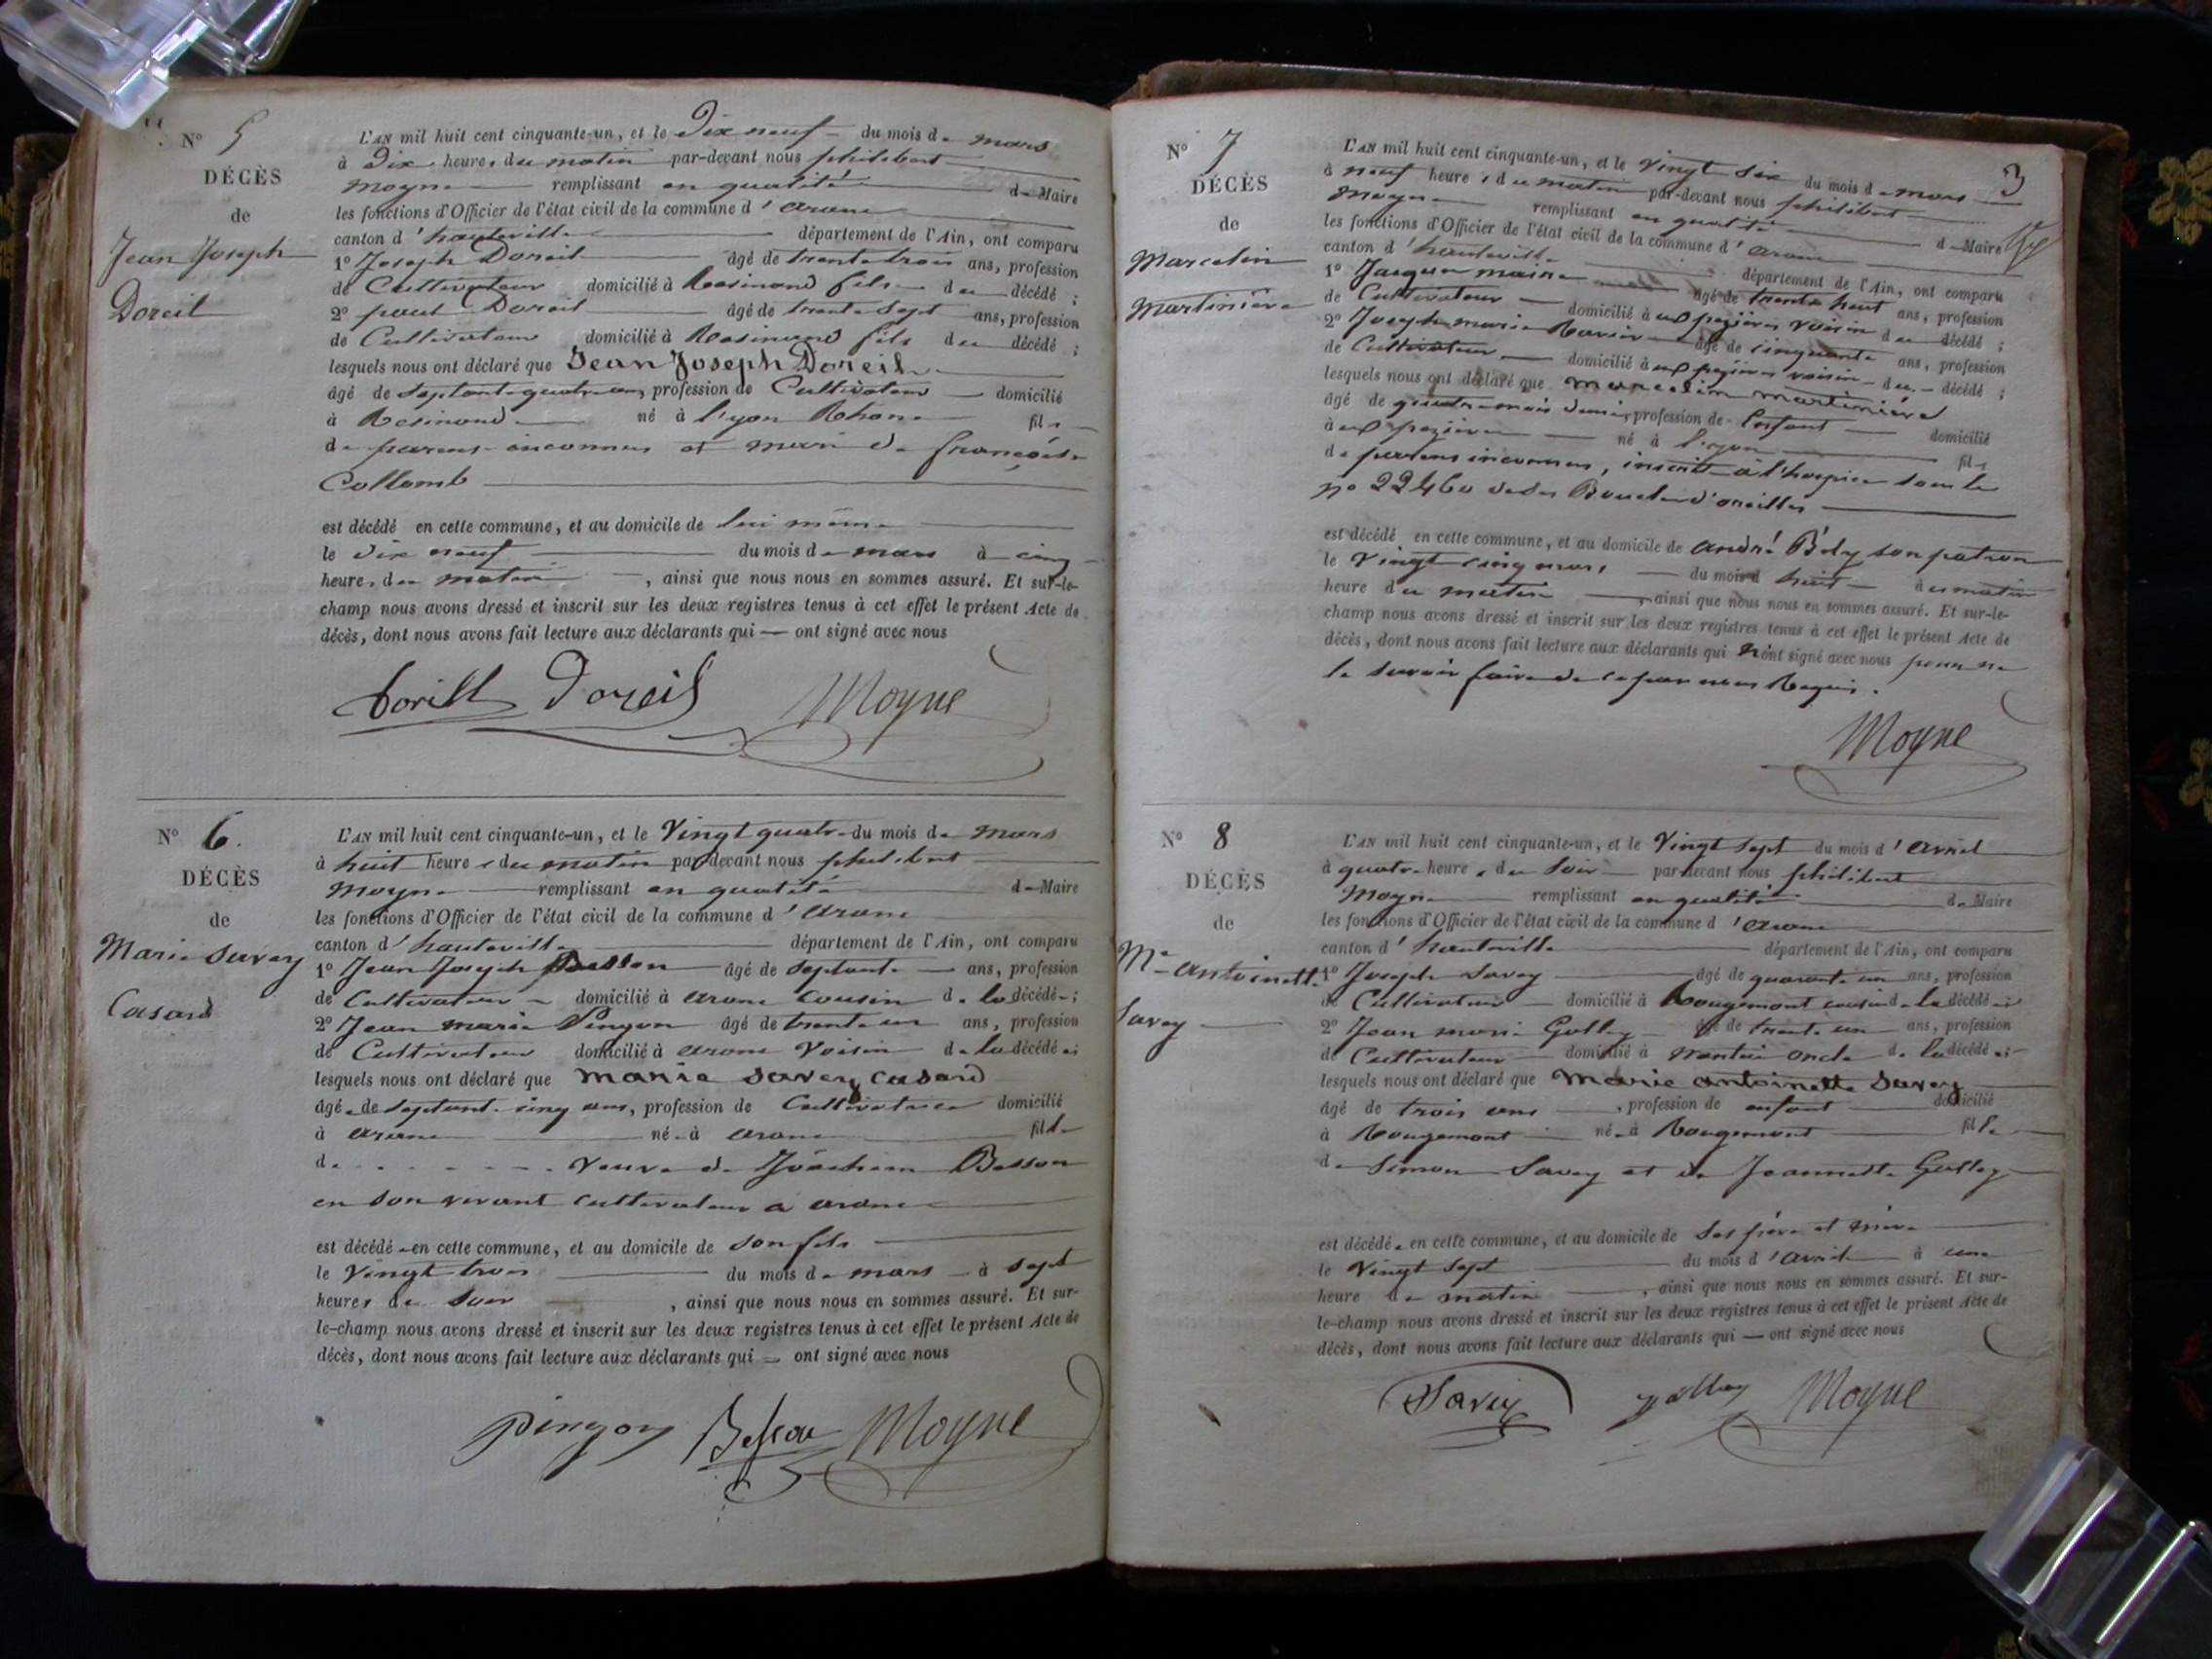 N° 5
DÉCÈS
de
Jean Joseph
Doreil
L'AN mil huit cent cinquante-un, et le Dix neuf du mois de mars
à Dix heures du matin par-devant nous philibert
Moyne remplissant en qualité de Maire
les fonctions d'Officier de l'état civil de la commune d'arane
canton d'hauteville département de l'Ain, ont comparu
1° Joseph Doreil âgé de trente trois ans, profession
de Cultivateur domicilié à Resinand fils du décédé ;
2° paul Doreil âgé de trente sept ans, profession
de Cultivateur domicilié à Resinand fils du décédé ;
lesquels nous ont déclaré que Jean Joseph Doreil
âgé de septante quatre ans, profession de Cultivateur domicilié
à Resinand né à lyon Rhone fils
de parens inconnus et mari de françoise
Collomb
est décédé en cette commune, et au domicile de lui même
le dix neuf du mois de mars à cinq
heures du matin , ainsi que nous nous en sommes assuré. Et sur-le-
champ nous avons dressé et inscrit sur les deux registres tenus à cet effet le présent Acte de
décès, dont nous avons fait lecture aux déclarants qui — ont signé avec nous
Doreil Moyne
N° 6.
DÉCÈS
de
Marie Savey
Casard
L'AN mil huit cent cinquante-un, et le Vingt quatre du mois de mars
à huit heures du matin par-devant nous philibert
Moyne remplissant en qualité de Maire
les fonctions d'Officier de l'état civil de la commune d'arane
canton d'hauteville département de l'Ain, ont comparu
1° Jean Joseph Besson âgé de septante ans, profession
de Cultivateur domicilié à arane Cousin de la décédée ;
2° Jean marie Pingon âgé de trente un ans, profession
de Cultivateur domicilié à arane Voisin de la décédée ;
lesquels nous ont déclaré que marie savey casard
âgée de septante cinq ans, profession de Cultivatrice domicilié
à arane née à arane fille
de . . . . . . . Veuve de Jôachim Besson
en son vivant cultivateur a arane
est décédée en cette commune, et au domicile de son fils
le Vingt trois du mois de mars à sept
heures du soir , ainsi que nous nous en sommes assuré. Et sur-
le-champ nous avons dressé et inscrit sur les deux registres tenus à cet effet le présent Acte de
décès, dont nous avons fait lecture aux déclarants qui = ont signé avec nous
pingon Besson Moyne
3
N° 7
DÉCÈS
de
Marcelin
Martinière
L'AN mil huit cent cinquante-un, et le Vingt six du mois de mars
à neuf heures du matin par-devant nous philibert
Moyne remplissant en qualité de Maire
les fonctions d'Officier de l'état civil de la commune d'arane
canton d'hauteville département de l'Ain, ont comparu
1° Jacques maire âgé de trente huit ans, profession
de Cultivateur domicilié à voisin du décédé ;
2° Joseph marie âgé de cinquante ans, profession
de Cultivateur domicilié à voisin du décédé ;
lesquels nous ont déclaré que marcelin martinière
âgé de quatre mois demi, profession de Enfant domicilié
à né à lyon fils
de parens inconnus, inscrit à l'hospice sous le
n° 22460 de des Boucles d'oreilles
est décédé en cette commune, et au domicile de andré Bély son patron
le Vingt cinq mars du mois d huit du matin
heure du matin , ainsi que nous nous en sommes assuré. Et sur-le-
champ nous avons dressé et inscrit sur les deux registres tenus à cet effet le présent Acte de
décès, dont nous avons fait lecture aux déclarants qui n'ont signé avec nous pour ne
le savoir faire de ce par nous Requis.
Moyne
N° 8
DÉCÈS
de
Me antoinette
Savey
L'AN mil huit cent cinquante-un, et le Vingt sept du mois d'avril
à quatre heures du soir par-devant nous philibert
Moyne remplissant en qualité de Maire
les fonctions d'Officier de l'état civil de la commune d'arane
canton d'hauteville département de l'Ain, ont comparu
1° Joseph Savey âgé de quarante un ans, profession
de Cultivateur domicilié à Rougemont cousin de la décédée ;
2° Jean marie Golley âgé de trente un ans, profession
de Cultivateur domicilié à nantui oncle de la décédée ;
lesquels nous ont déclaré que marie antoinette Savey
âgé de trois ans , profession de enfant domicilié
à Rougemont née à Rougemont fille
de Simon Savey et de Jeannette Golley
est décédée en cette commune, et au domicile de ses père et mère
le Vingt sept du mois d'avril à une
heure du matin , ainsi que nous nous en sommes assuré. Et sur-
le-champ nous avons dressé et inscrit sur les deux registres tenus à cet effet le présent Acte de
décès, dont nous avons fait lecture aux déclarants qui — ont signé avec nous
Savey golley Moyne